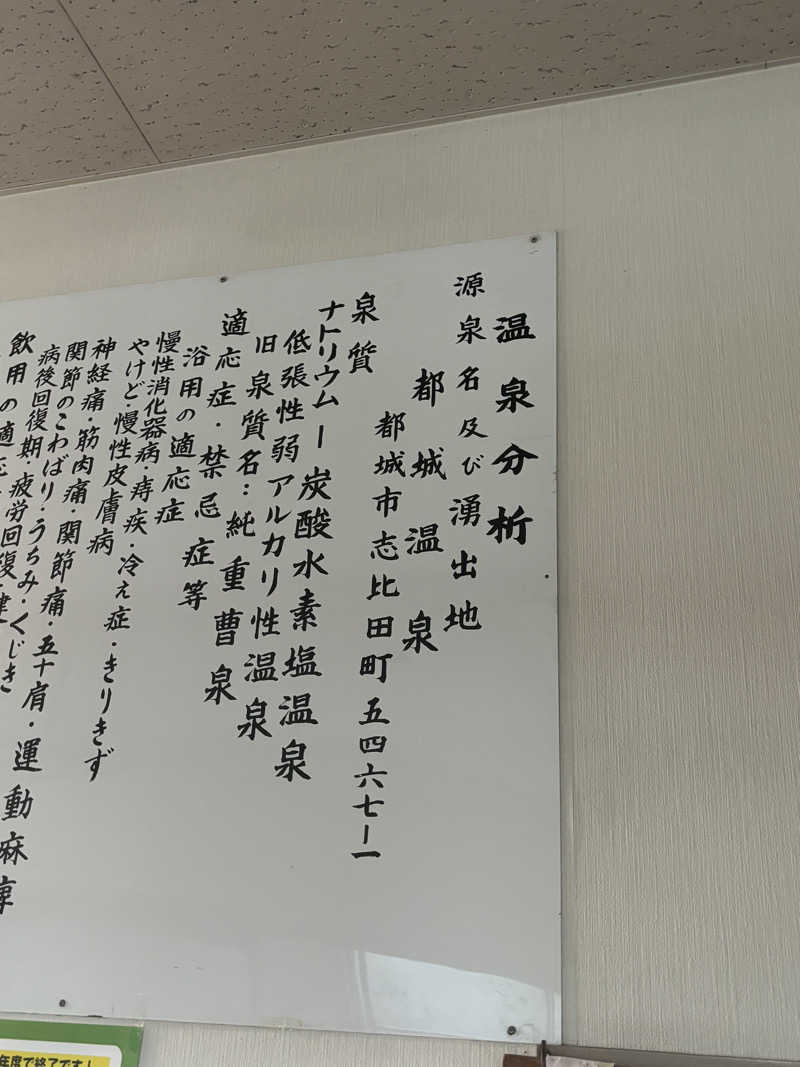 温泉分析
源泉名及び湧出地
都城温泉
都城市志比田町五四六七ー一
泉質
ナトリウムー炭酸水素塩温泉
低張性弱アルカリ性温泉
旧泉質名：純重曹泉
適応症・禁忌症等
浴用の適応症
慢性消化器病・痔疾・冷え症・きりきず
やけど・慢性皮膚病
神経痛・筋肉痛・関節痛・五十肩・運動麻痺
関節のこわばり・うちみ・くじき
病後回復期・疲労回復・健
飲用の適応
年度で終了です！